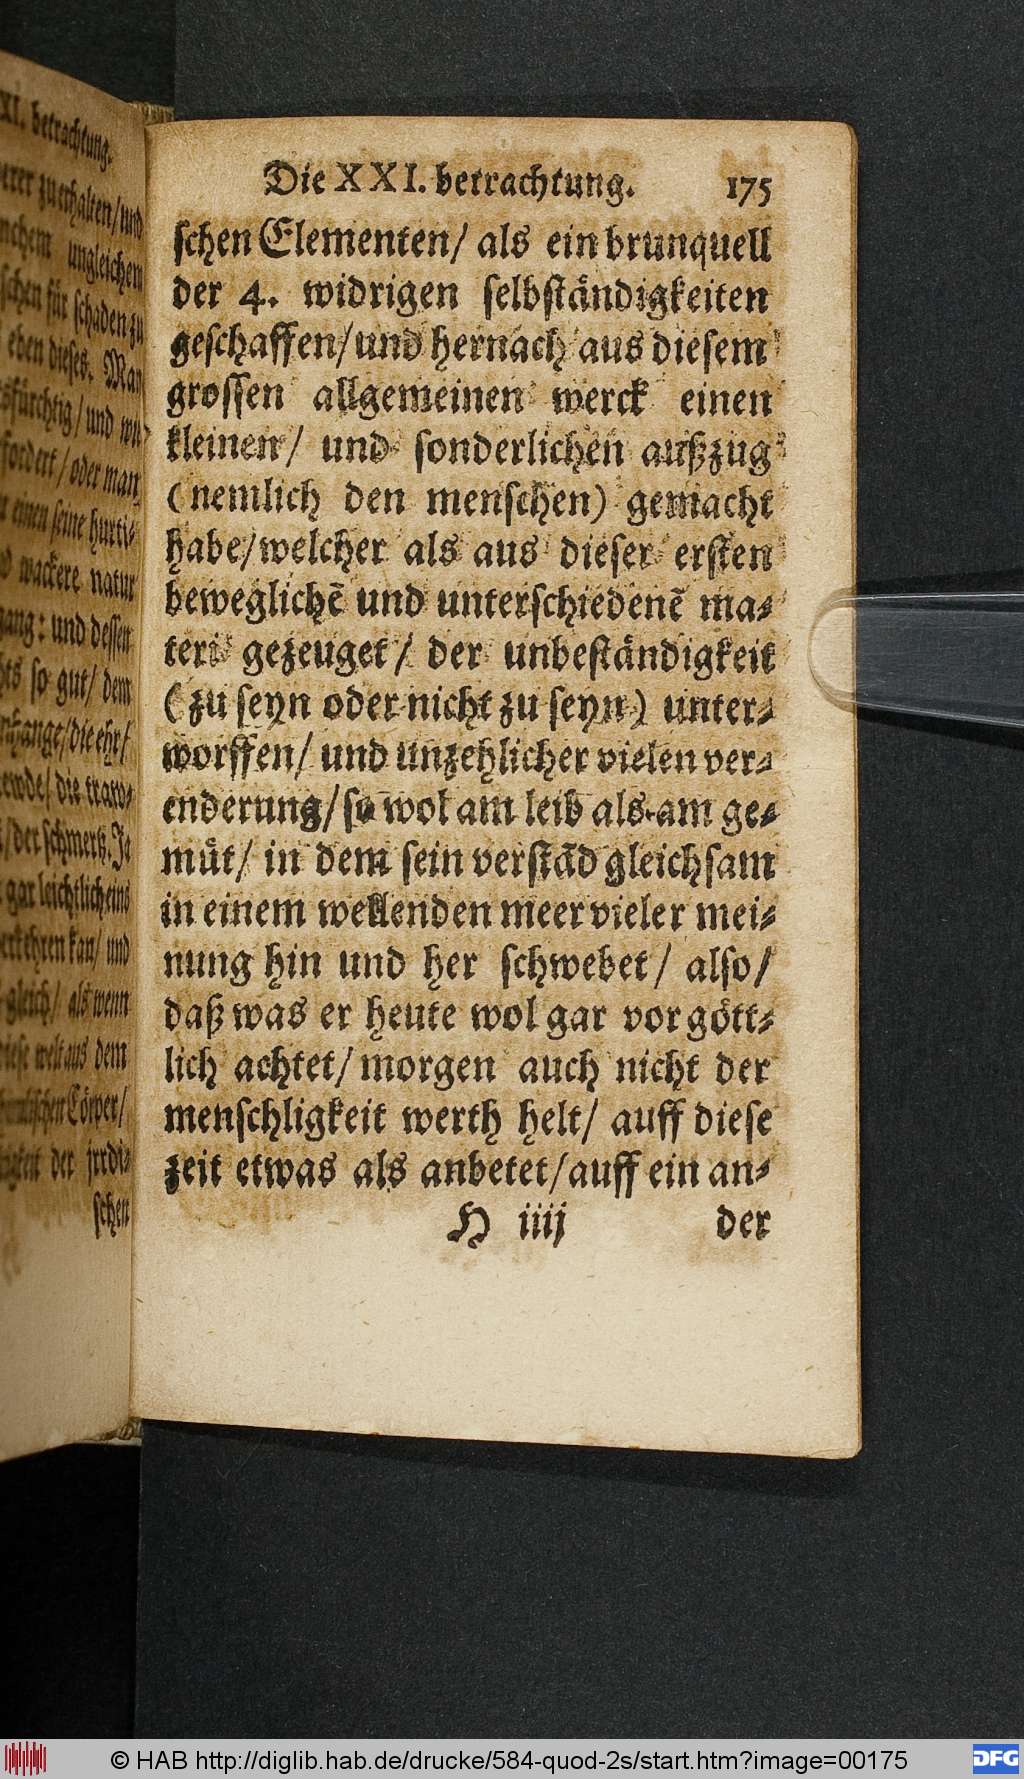 XI. betrachtung.
erer zuerhalten/und
nchem ungleichem
schen für schaden zu
eben dieses. Man
sfürchtig/und wu
fordert/oder man
einen seine hurti-
wackere natur
gang: und dessen
so gut/dem
anhange/die ehr/
die traw-
/der schmertz. Je
gar leichtlich eins
verkehren kan/und
gleich/als wenn
diese welt aus dem
Cörper/
der jrrdi-
schen
Die XXI. betrachtung. 175
schen Elementen/ als ein brunquell
der 4. widrigen selbständigkeiten
geschaffen/und hernach aus diesem
grossen allgemeinen werck einen
kleinen/ und sonderlichen außzug
(nemlich den menschen) gemacht
habe/welcher als aus dieser ersten
beweglichẽ und unterschiedenẽ ma-
teri gezeuget/ der unbeständigkeit
(zu seyn oder nicht zu seyn) unter-
worffen/ und unzehlicher vielen ver-
enderung/so wol am leib als am ge-
müt/ in dem sein verstãd gleichsam
in einem wellenden meer vieler mei-
nung hin und her schwebet/ also/
daß was er heute wol gar vor gött-
lich achtet/morgen auch nicht der
menschligkeit werth helt/ auff diese
zeit etwas als anbetet/auff ein an-
H iiij der
© HAB http://diglib.hab.de/drucke/584-quod-2s/start.htm?image=00175
DFG